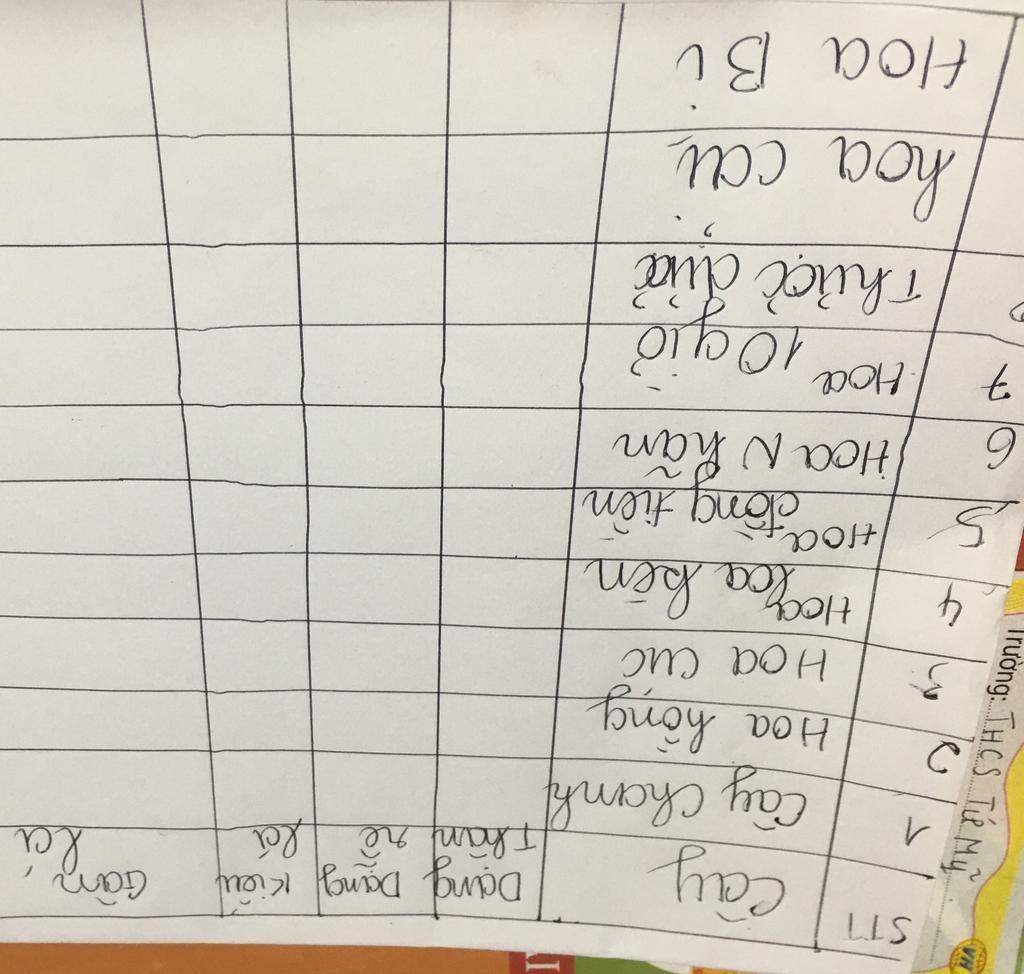 STT
Cây
Dạng Thân
Dạng rễ
Kiểu lá
Gân lá
1 Cây Chanh
2 Hoa hồng
3 Hoa cúc
4 Hoa loa kèn
5 Hoa đồng tiền
6 Hoa Nhãn
7 Hoa 10 giờ
Thược dược
hoa cải
Hoa Bí
Trường: THCS Tứ Mỹ
VH